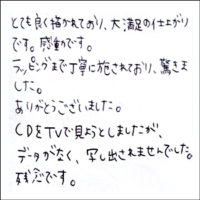 とても良く描かれており、大満足の仕上がり
です。感動のです。
ラッピングまで丁寧に施されており、驚きま
した。
ありがとうございました。
CDをTVで見ようとしましたが、
データがなく、写し出されませんでした。
残念です。